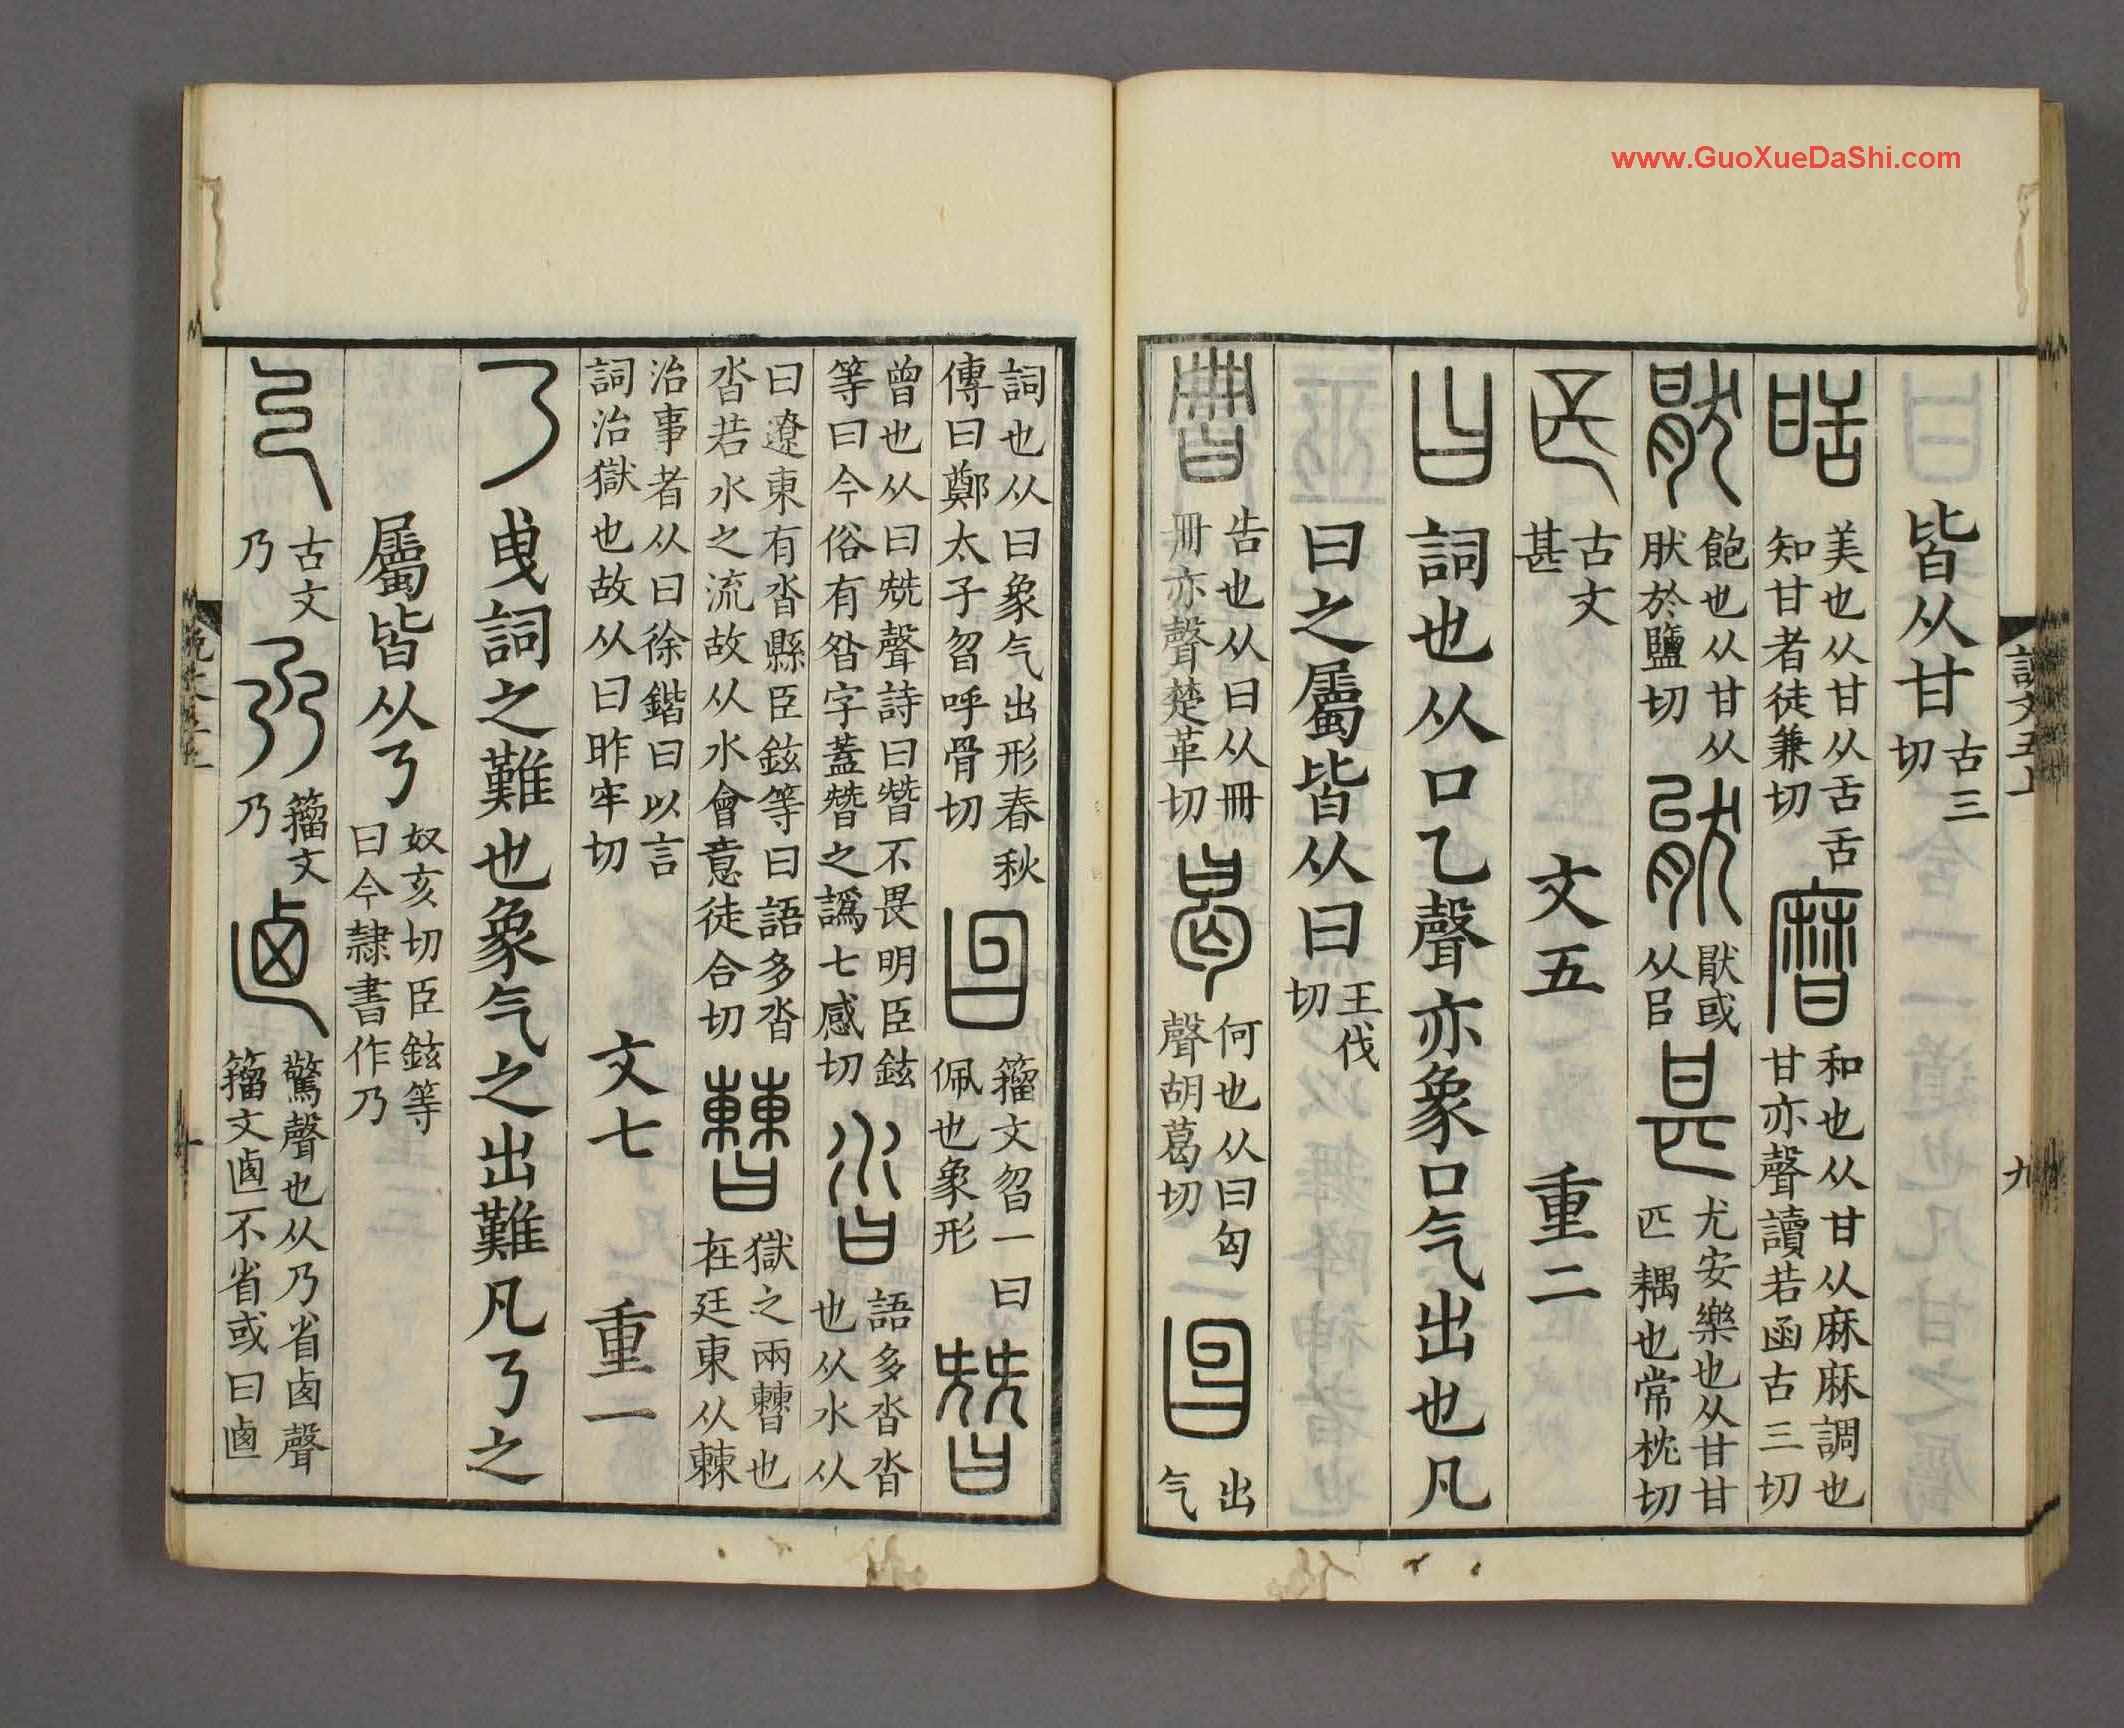 www.GuoXueDaShi.com
皆从甘古三切
美也从甘从舌舌知甘者徒兼切 和也从甘从麻麻調也甘亦聲讀若函古三切
飽也从甘从肰於鹽切 猒或从㠯 尤安樂也从甘甘匹耦也常枕切
古文甚 文五 重二
詞也从口乙聲亦象口气出也凡
曰之屬皆从曰王伐切
告也从曰从冊冊亦聲楚革切 何也从曰匃聲胡葛切 出气
說文五上 九
詞也从曰象气出形春秋傳曰鄭太子曶呼骨切 籀文曶一曰佩也象形
曾也从曰兓聲詩曰朁不畏明臣鉉等曰今俗有昝字蓋朁之譌七感切 語多沓沓也从水从
曰遼東有沓縣臣鉉等曰語多沓沓若水之流故从水會意徒合切 獄之兩曹也在廷東从㯥
治事者从曰徐鍇曰以言詞治獄也故从曰昨牢切 文七 重一
曳詞之難也象气之出難凡𠄎之
屬皆从𠄎奴亥切臣鉉等曰今隸書作乃
古文乃 籀文乃 驚聲也从乃省㢴聲籀文𠧟不省或曰𠧟